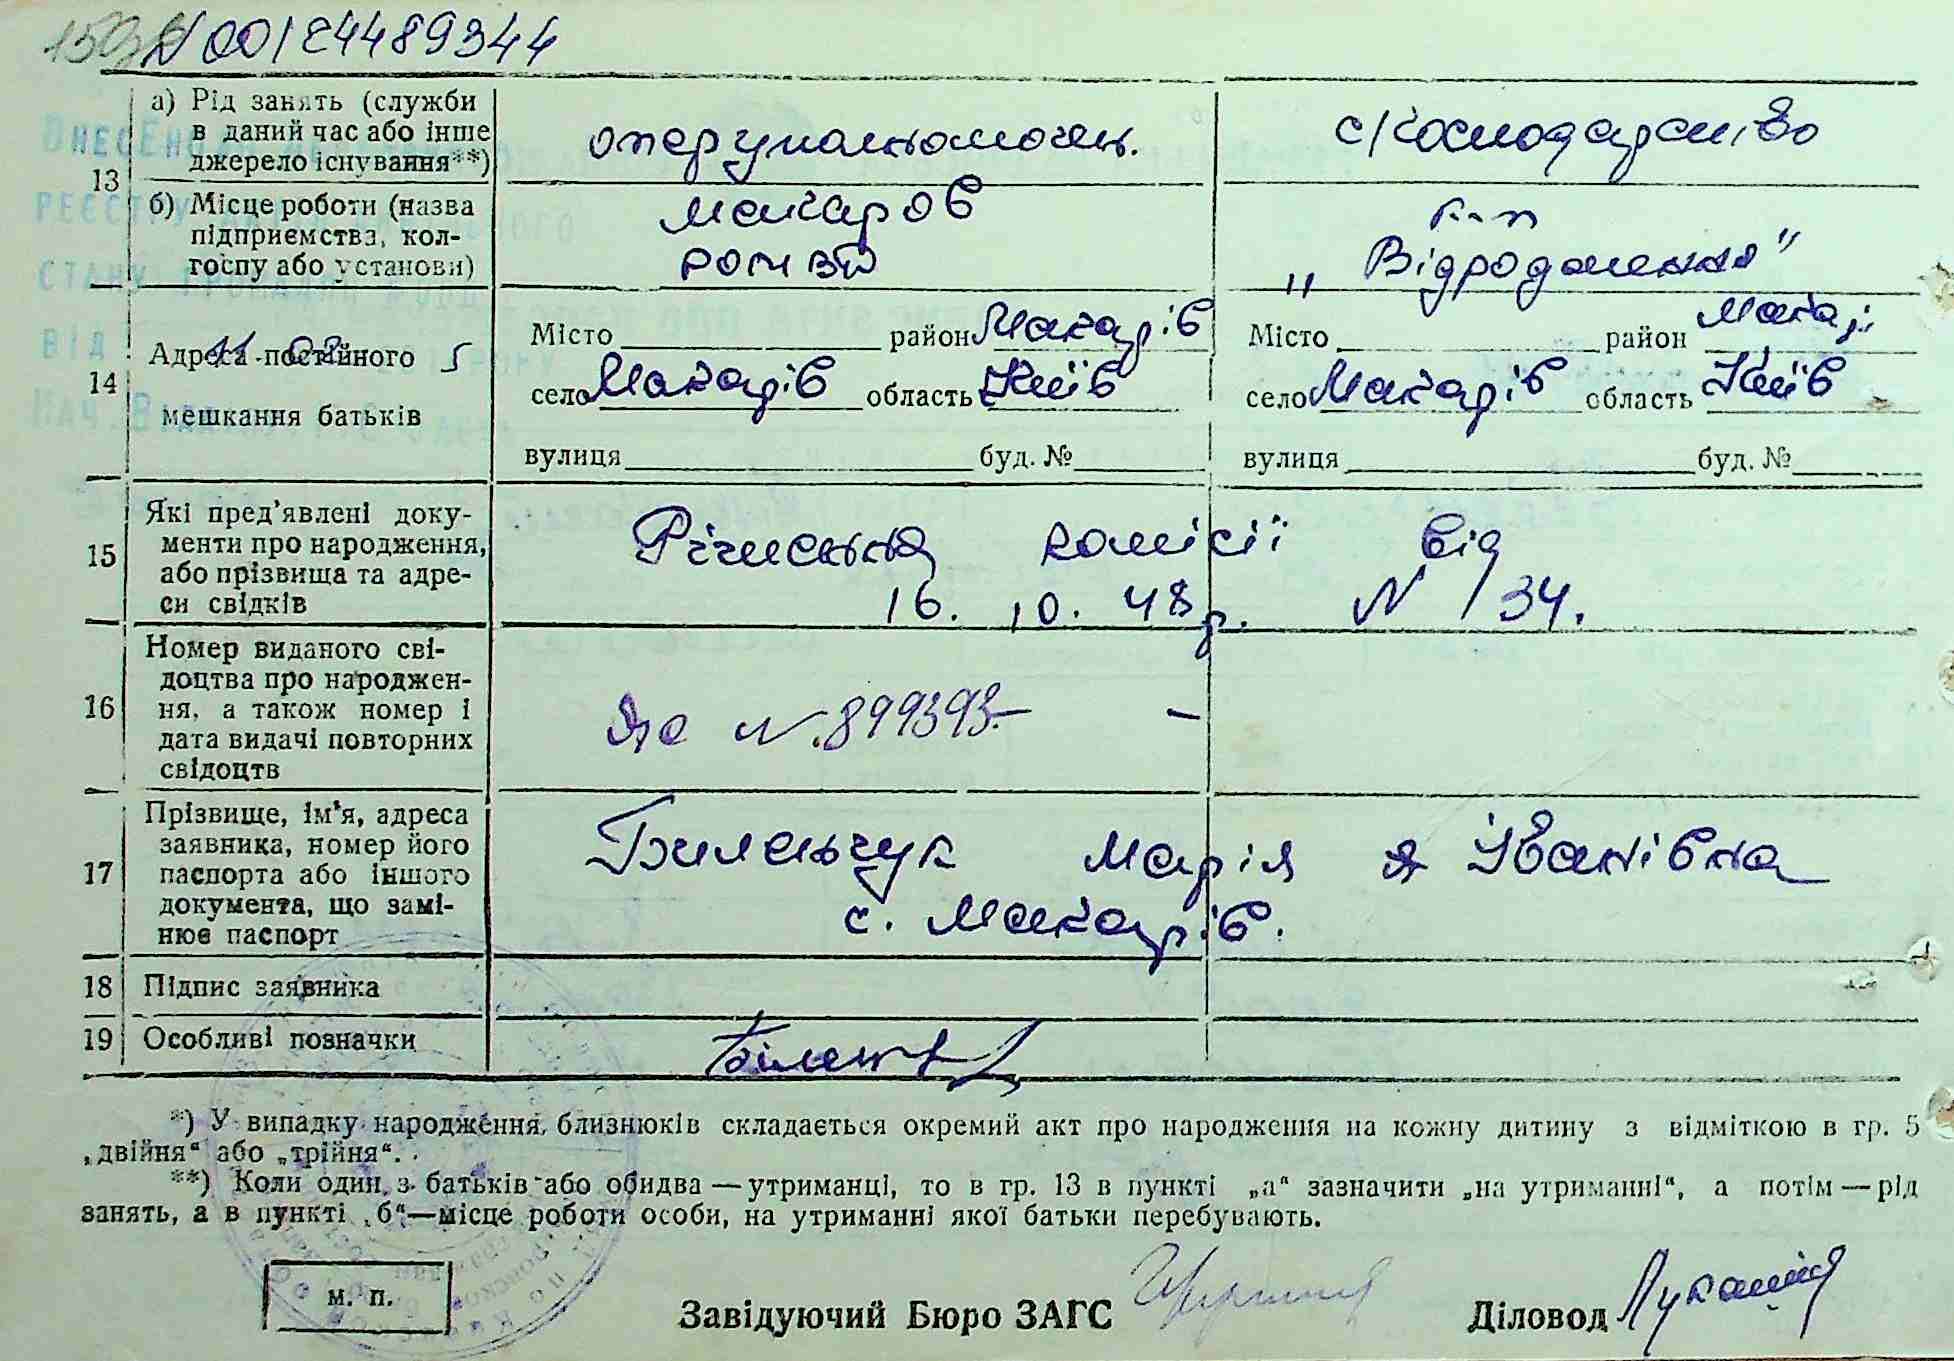 00124489344
13
а) Рід занять (служби в даний час або інше джерело існування**)
оперуполномочен.
с/господарство
б) Місце роботи (назва підприємства, колгоспу або установи)
Макаров
РОМВД
к-п
„Відродження"
14
Адреса постійного мешкання батьків
Місто район Макарів
село Макарів область Київ
вулиця буд. №
Місто район Макарі
село Макарів область Київ
вулиця буд. №
15
Які пред’явлені документи про народження, або прізвища та адреси свідків
комісії від
16. 10. 48 р. N 134.
16
Номер виданого свідоцтва про народження, а також номер і дата видачі повторних свідоцтв
N. 899393.– –
17
Прізвище, ім’я, адреса заявника, номер його паспорта або іншого документа, що замінює паспорт
Биленьчук Марія Іванівна
с. Макарів.
18 Підпис заявника
19 Особливі позначки
*) У випадку народження близнюків складається окремий акт про народження на кожну дитину з відміткою в гр. 5
„двійня“ або „трійня“.
**) Коли один з батьків або обидва — утриманці, то в гр. 13 в пункті „а“ зазначити „на утриманні“, а потім — рід
занять, а в пункті „б“—місце роботи особи, на утриманні якої батьки перебувають.
м. п.
Завідуючий Бюро ЗАГС
Діловод